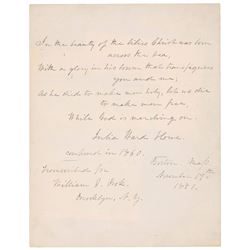 In the beauty of the lilies Christ was born
across the sea,
With a glory in his bosom that transfigures
you and me;
As he died to make men holy, let us die
to make men free,
While God is marching on.
Julia Ward Howe.
composed in 1860.
Boston, Mass.
Transcribed for
November
William J.
1881.
Brooklyn, N.Y.